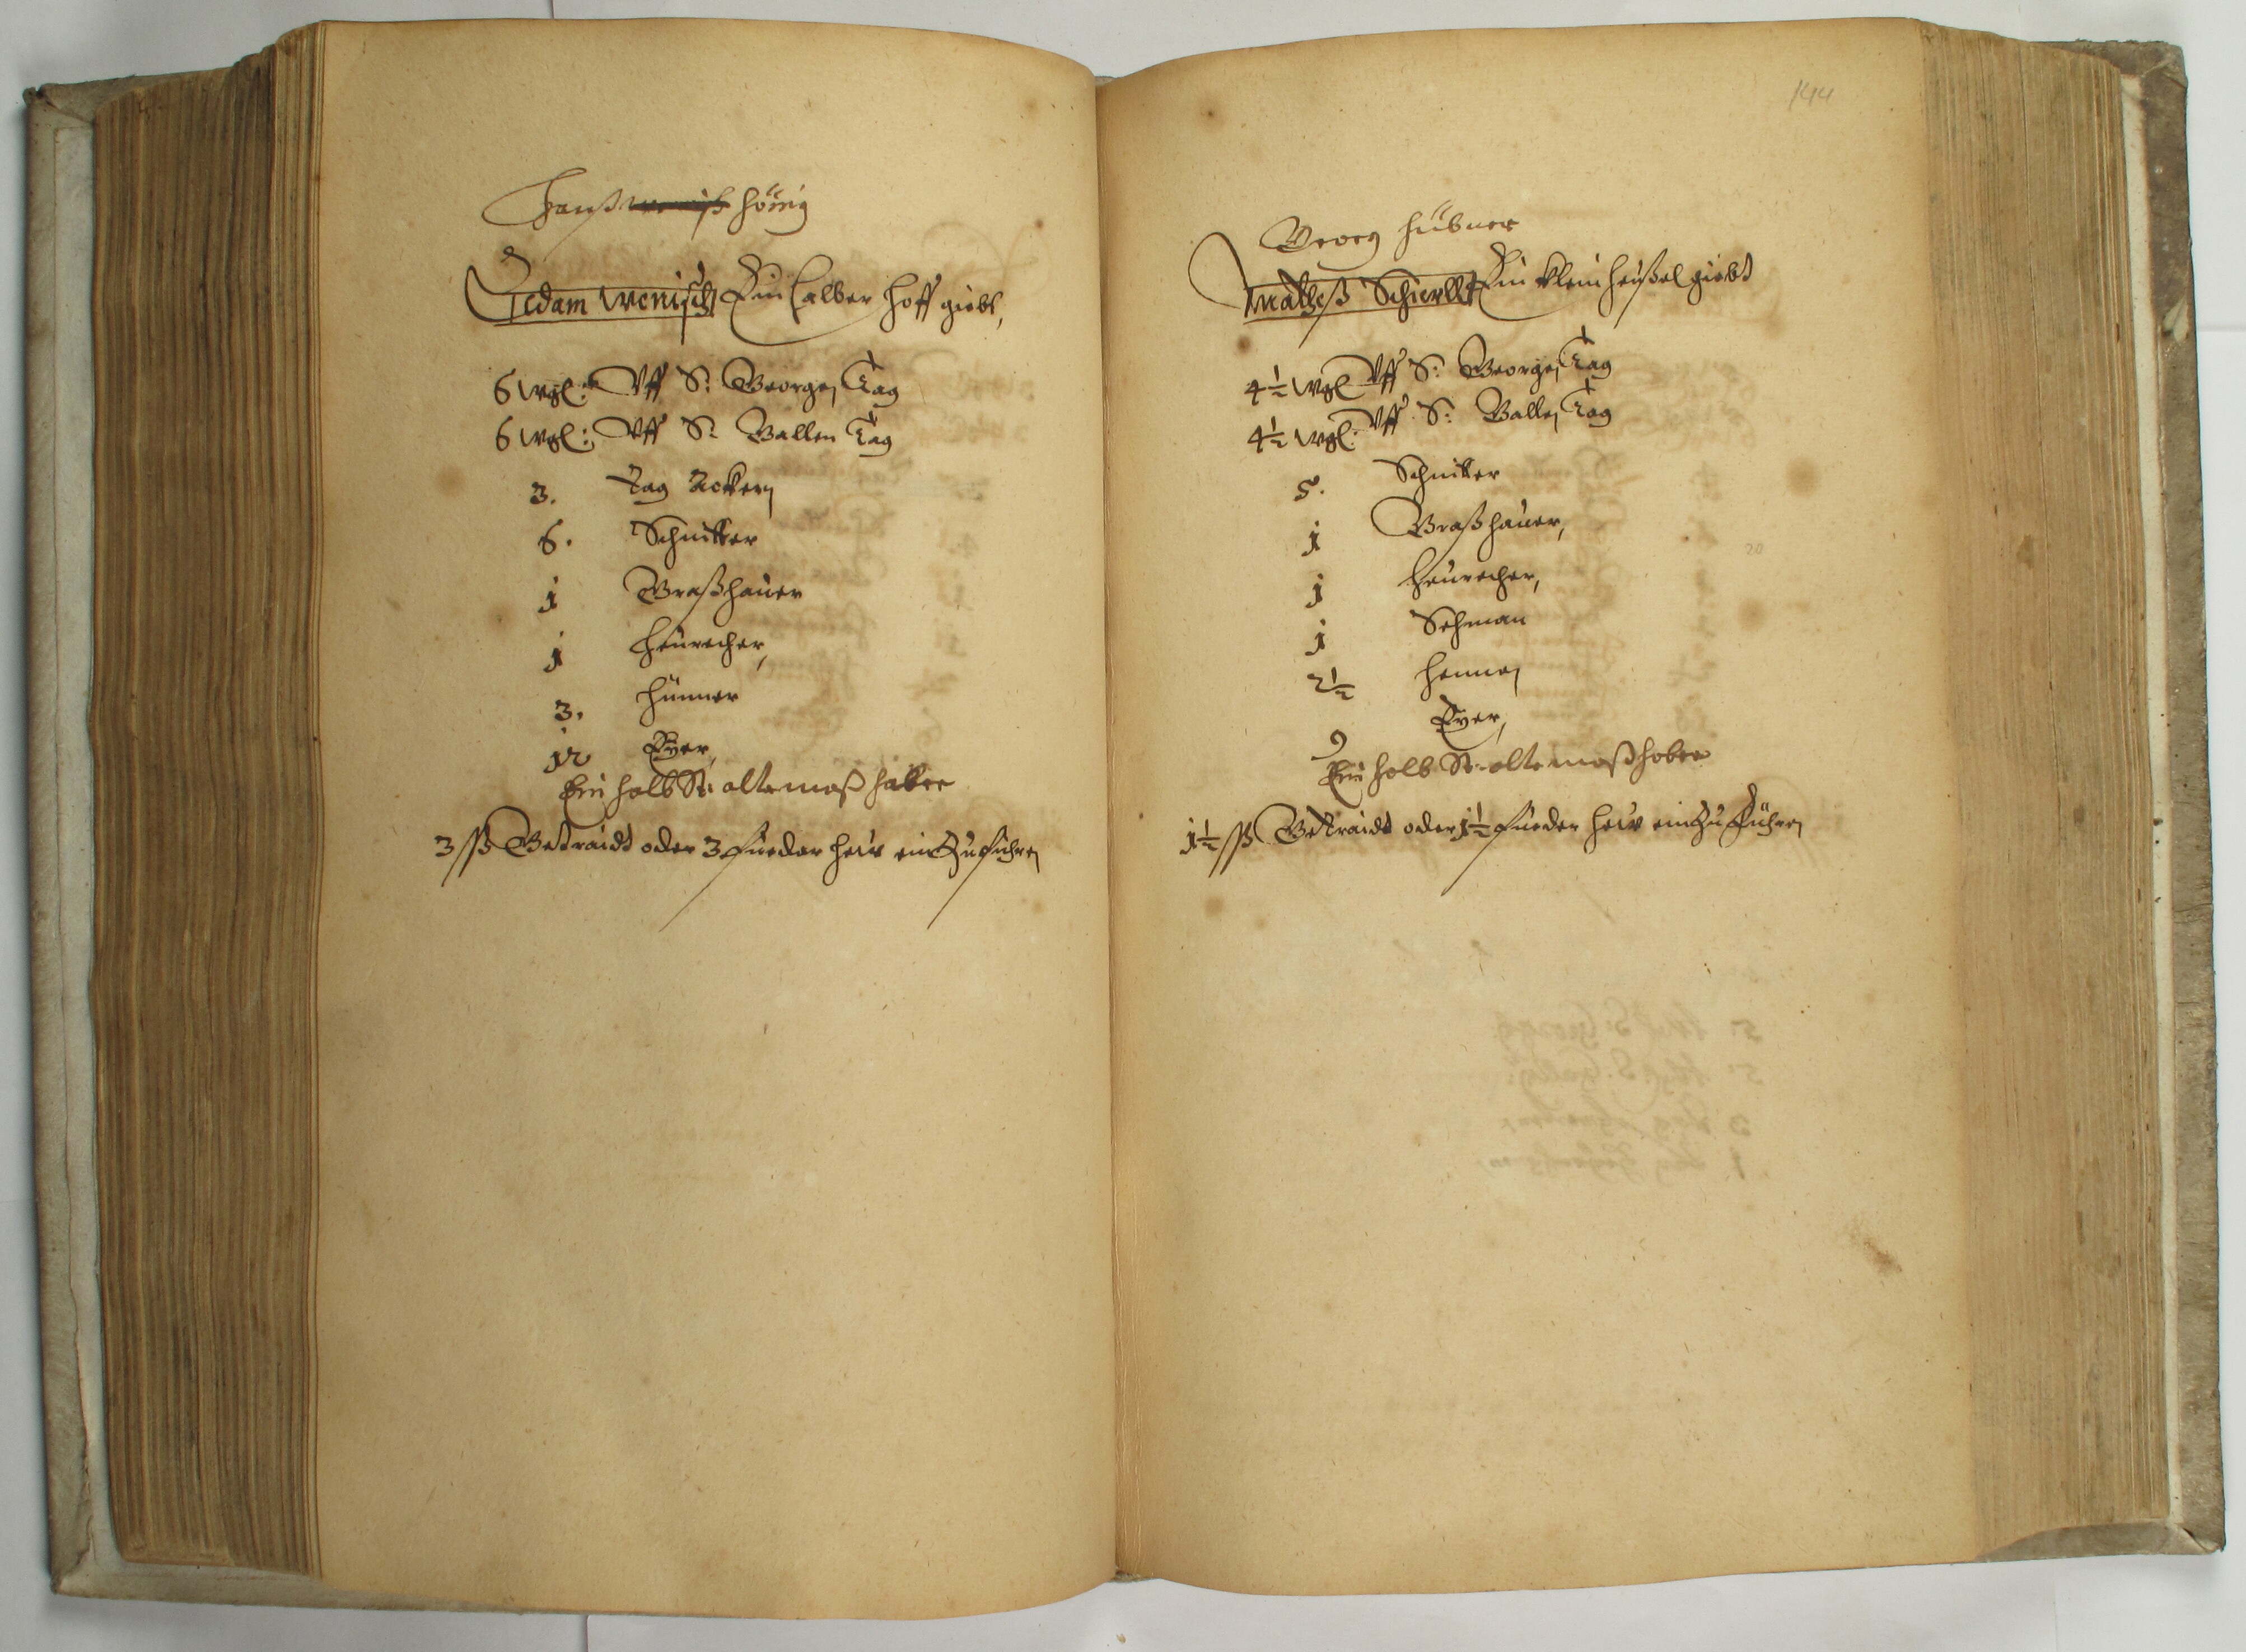 Hanß Hönig
Adam Wenisch Ein halber hoff giebt,
6 wgl: Vff S: Georgen Tag
6 wgl: Vff S: Gallen Tag
3. Tag Ackern
6. Schnitter
1 Graßhauer
1 Heurecher,
3. Hünner
12 Eyer,
Ein halb St: alte maß haber
3 ßß Getraidt oder 3 Fueder hew ein Zu führen
144
Georg Hübner
Matheß Schierllt Ein klein heußel giebt
4½ wgl Vff S: Georgen Tag
4½ wgl: Vff S: Gallen Tag
5. Schnitter
1 Graßhauer,
1 Heurecher,
1 Sehman
2½ Hennen
9 Eyer,
Ein halb St: alte maß haber
1½ ßß Getraidt oder 1½ Fueder hew ein Zu Führen
20